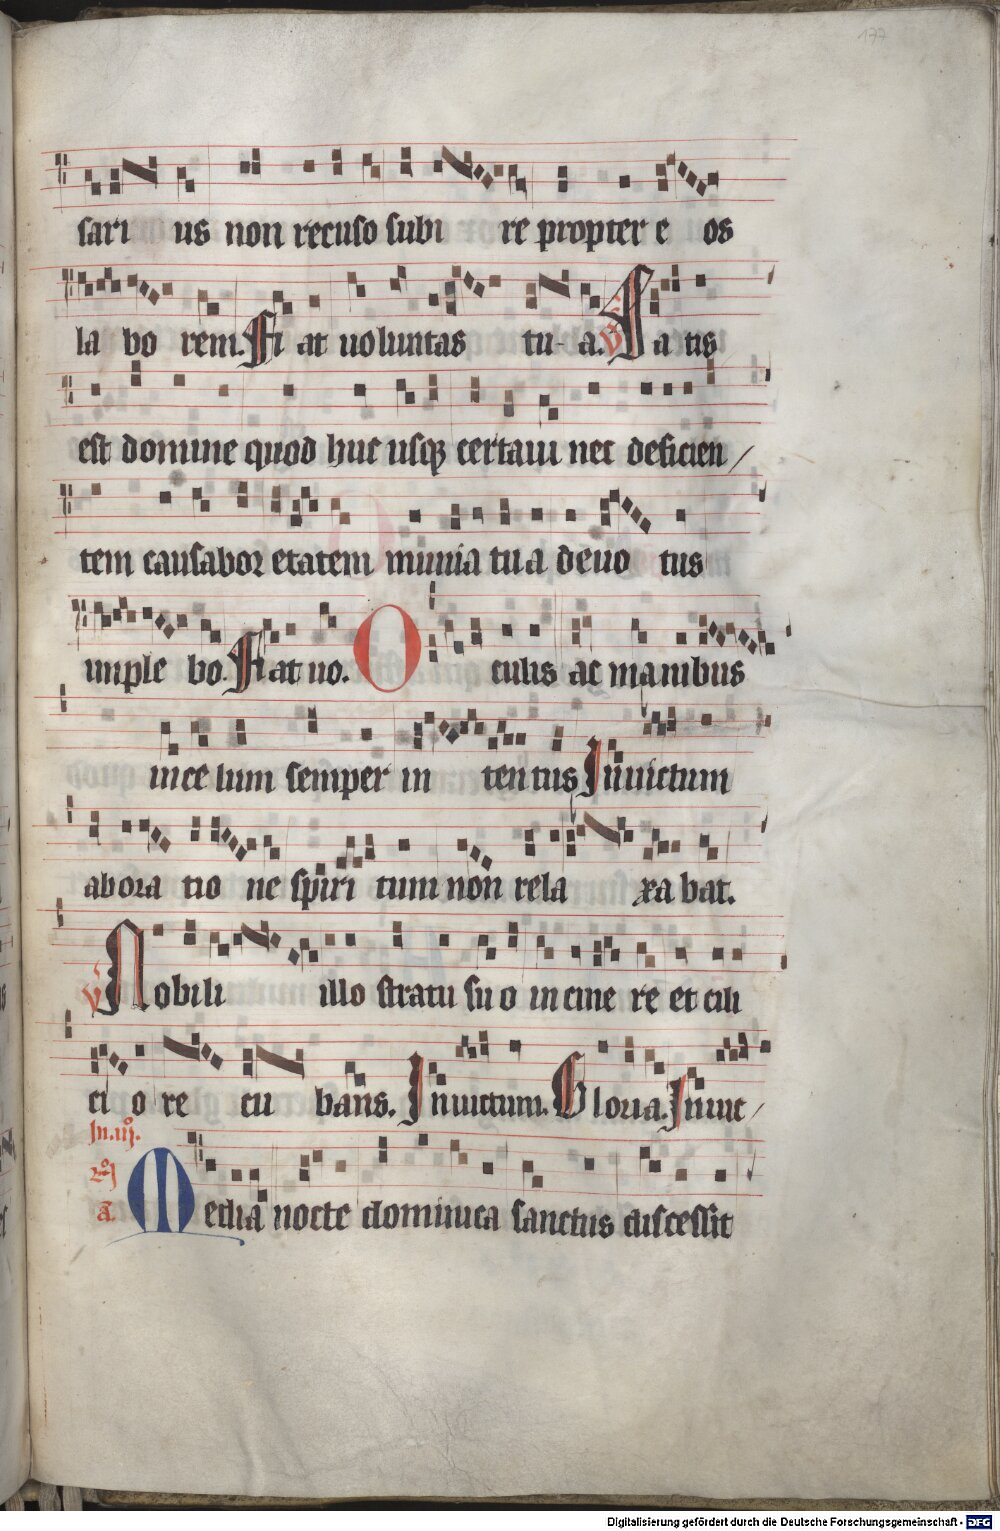 177
sari us non recuso subi re propter e os
la bo rem. Fi at uoluntas tu- a. V Sa tis
est domine quod huc usq certaui nec deficien/
tem causabor etatem munia tu a deuo tus
imple bo. Fi at uo. O culis ac manibus
in ce lum semper in ten tus Inuictum
ab ora tio ne spiri tum non rela xa bat.
V Nobili illo stratu su o in cine re et cili
ci o re cu bans. Inuictum. Gloria. Inuic/
In .iij.
Media nocte dominica sanctus discessit
a.
Digitalisierung gefördert durch die Deutsche Forschungsgemeinschaft - DFG